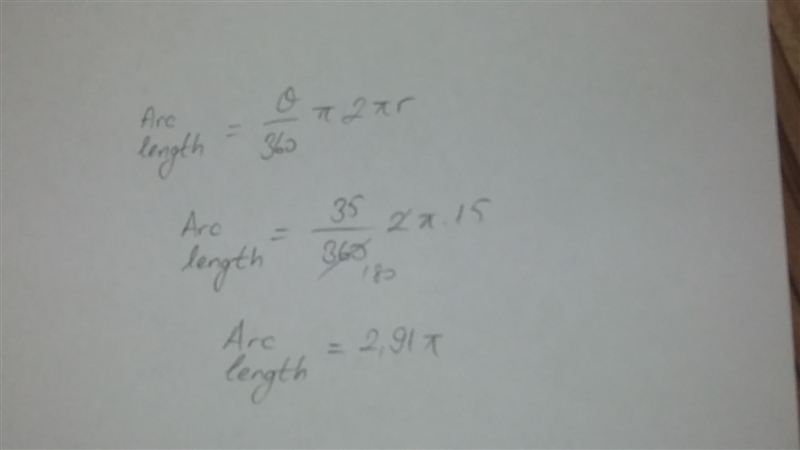 Arc length = θ/360 π 2πr
Arc length = 35/360 180 2π.15
Arc length = 2,91π